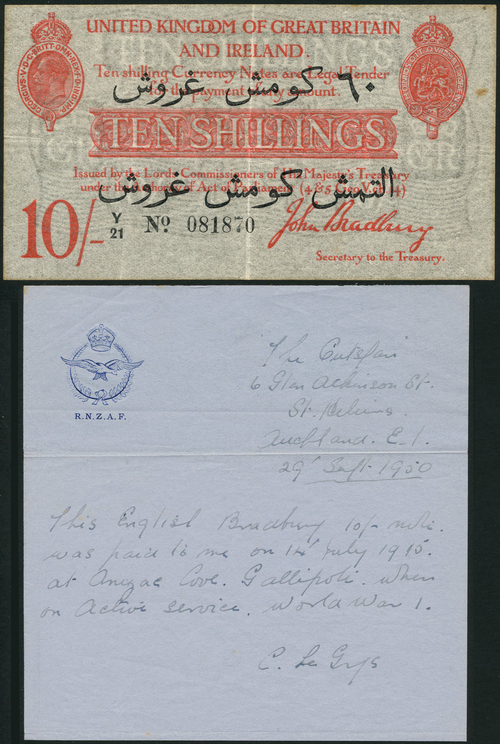 UNITED KINGDOM OF GREAT BRITAIN
AND IRELAND.
TEN SHILLINGS
Ten shilling Currency Notes are Legal Tender
for the payment of any amount.
٦٠ كومش غروش
TEN SHILLINGS
Issued by the Lords Commissioners of His Majesty's Treasury
under the Authority of Act of Parliament (4 & 5 Geo. V. ch. 14)
التمش كومش غروش
10/-
Y/21 No. 081870
John Bradbury
Secretary to the Treasury.
R.N.Z.A.F.
6 Glen Atkinson St.
St. Heliers.
Auckland. E.1.
29' Sept. 1950
This English Bradbury 10/- note.
was paid to me on 14' July 1915.
at Anzac Cove. Gallipoli. when
on Active service. World War 1.
C. Le Grys